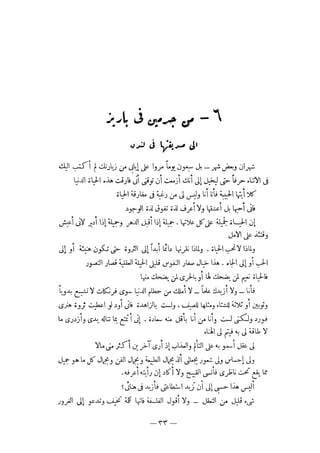 ٦ - من جرمين فى باريز
الى صديقتها فى لندن
شهران وبعض شهر ... بل سبعون يوماً مروا على إيابى من زيارتك لم أكتب اليك
فى الاثناء حرفاً حتى ليخيل إلى أنك أزمعت أن توقنى أنى فارقت هذه الحياة الدنيا
كلا أيتها الحبيبة فأنا أنا وليس لى من رغبة فى مفارقة الحياة
فانى أحبها بل أعشقها ولا أعرف لذة تفوق لذة الوجود
إن الحياة لجميلة على كل علاتها . جميلة إذا أقبل الدهر وجميلة إذا أدبر لأنى أعيش
وقتئذ على الأمل
ولماذا لا نحب الحياة . ولماذا نقرنها دائماً أبداً إلى الثروة حتى تكون هنيئة أو إلى
الحب أو إلى الجاه . هذا خيال صغار النفوس قليلى الحيلة العقلية قصار التصور
فالحياة نعيم لمن يضحك لها أو بالحرى لمن يضحك منها
فأنا ــ ولا أزيدك علماً ــ لا أملك من حطام الدنيا سوى فرنكات لا تشبع بدوياً
وثوبين أو ثلاثة للشتاء ومثلها للصيف ، ولست بالزاهدة فانى أود لو اعطيت ثروة هنرى
فورد ولكننى لست وأنا من أنا بأقل منه سعادة . إنى أتمتع بما تناله يدى وأزدرى ما
لا طاقة لى به فيتم لى الهناء
لى عقل أسمو به على التألم والعذاب إذ أرى آخرين أكثر منى مالا
ولى إحساس ولى شعور يجعلنى ألذ بجمال الطبيعة وبجمال الفن وبجمال كل ما هو جميل
مما يقع تحت ناظرى فأنسى القبيح ولا أكاد إن رأيته أعرفه .
أليس هذا حسبى إلى أن تزيد استطاعتى فأزيد فى هنائى؟
شىء قليل من التعقل ــ ولا أقول الفلسفة فانها كلمة تخيف وتدعو إلى الغرور
— ٣٣ —